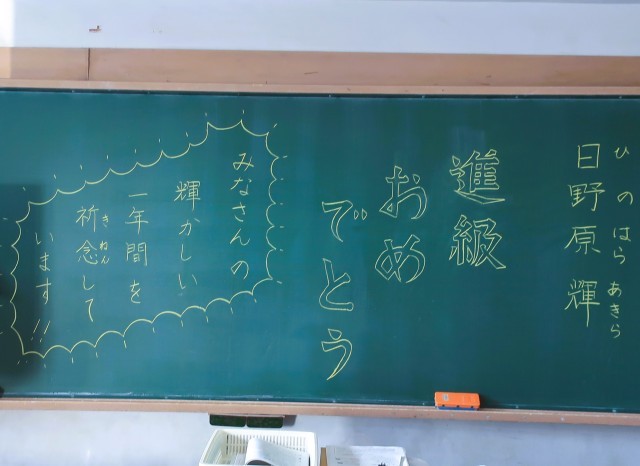 日野原輝
ひのはらあきら
進級
おめ
でとう
みなさんの
輝かしい
一年間を
祈念して
きねん
います!!